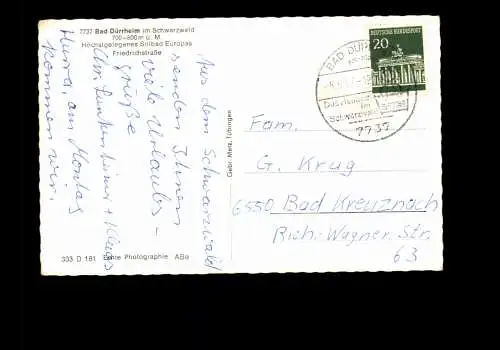 7737 Bad Dürrheim im Schwarzwald
700–800m ü. M.
Höchstgelegenes Solbad Europas
Friedrichstraße
Aus dem Schwarzwald
senden Ihnen
viele Urlaubs-
grüße
Ihre + Klaus
Hurra, am Montag
kommen wir.
333 D 181 Echte Photographie ABa
Gebr. Metz, Tübingen
DEUTSCHE BUNDESPOST
20
BAD DÜRRHEIM
im
Schwarzwald
7737
Fam.
G. Krug
6550 Bad Kreuznach
Rich.-Wagner Str.
63